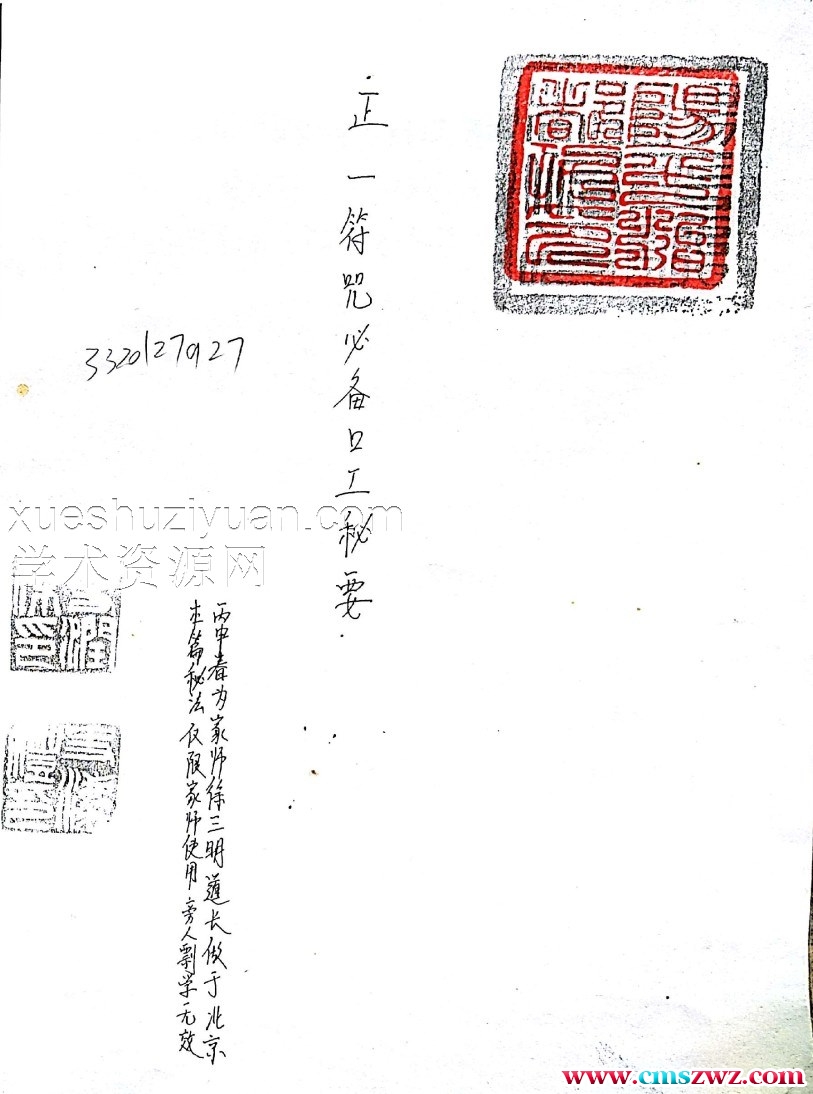 正一符咒必备口工秘要
丙申春为家师徐三明道长做于北京
本篇秘法仅限家师使用旁人剽学无效
3320127927
xueshuziyuan.com
学术资源网
www.cmszwz.com